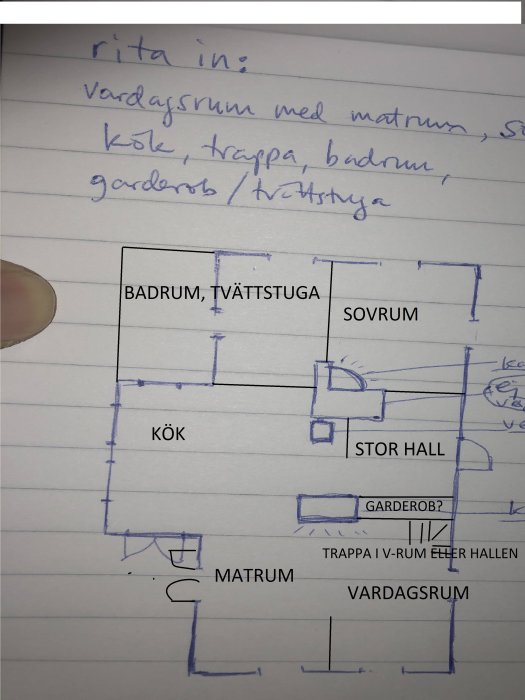 rita in:
vardagsrum med matrum,
kök, trappa, badrum,
garderob/tvättstuga
BADRUM, TVÄTTSTUGA
SOVRUM
KÖK
STOR HALL
GARDEROB?
TRAPPA I V-RUM ELLER HALLEN
MATRUM
VARDAGSRUM